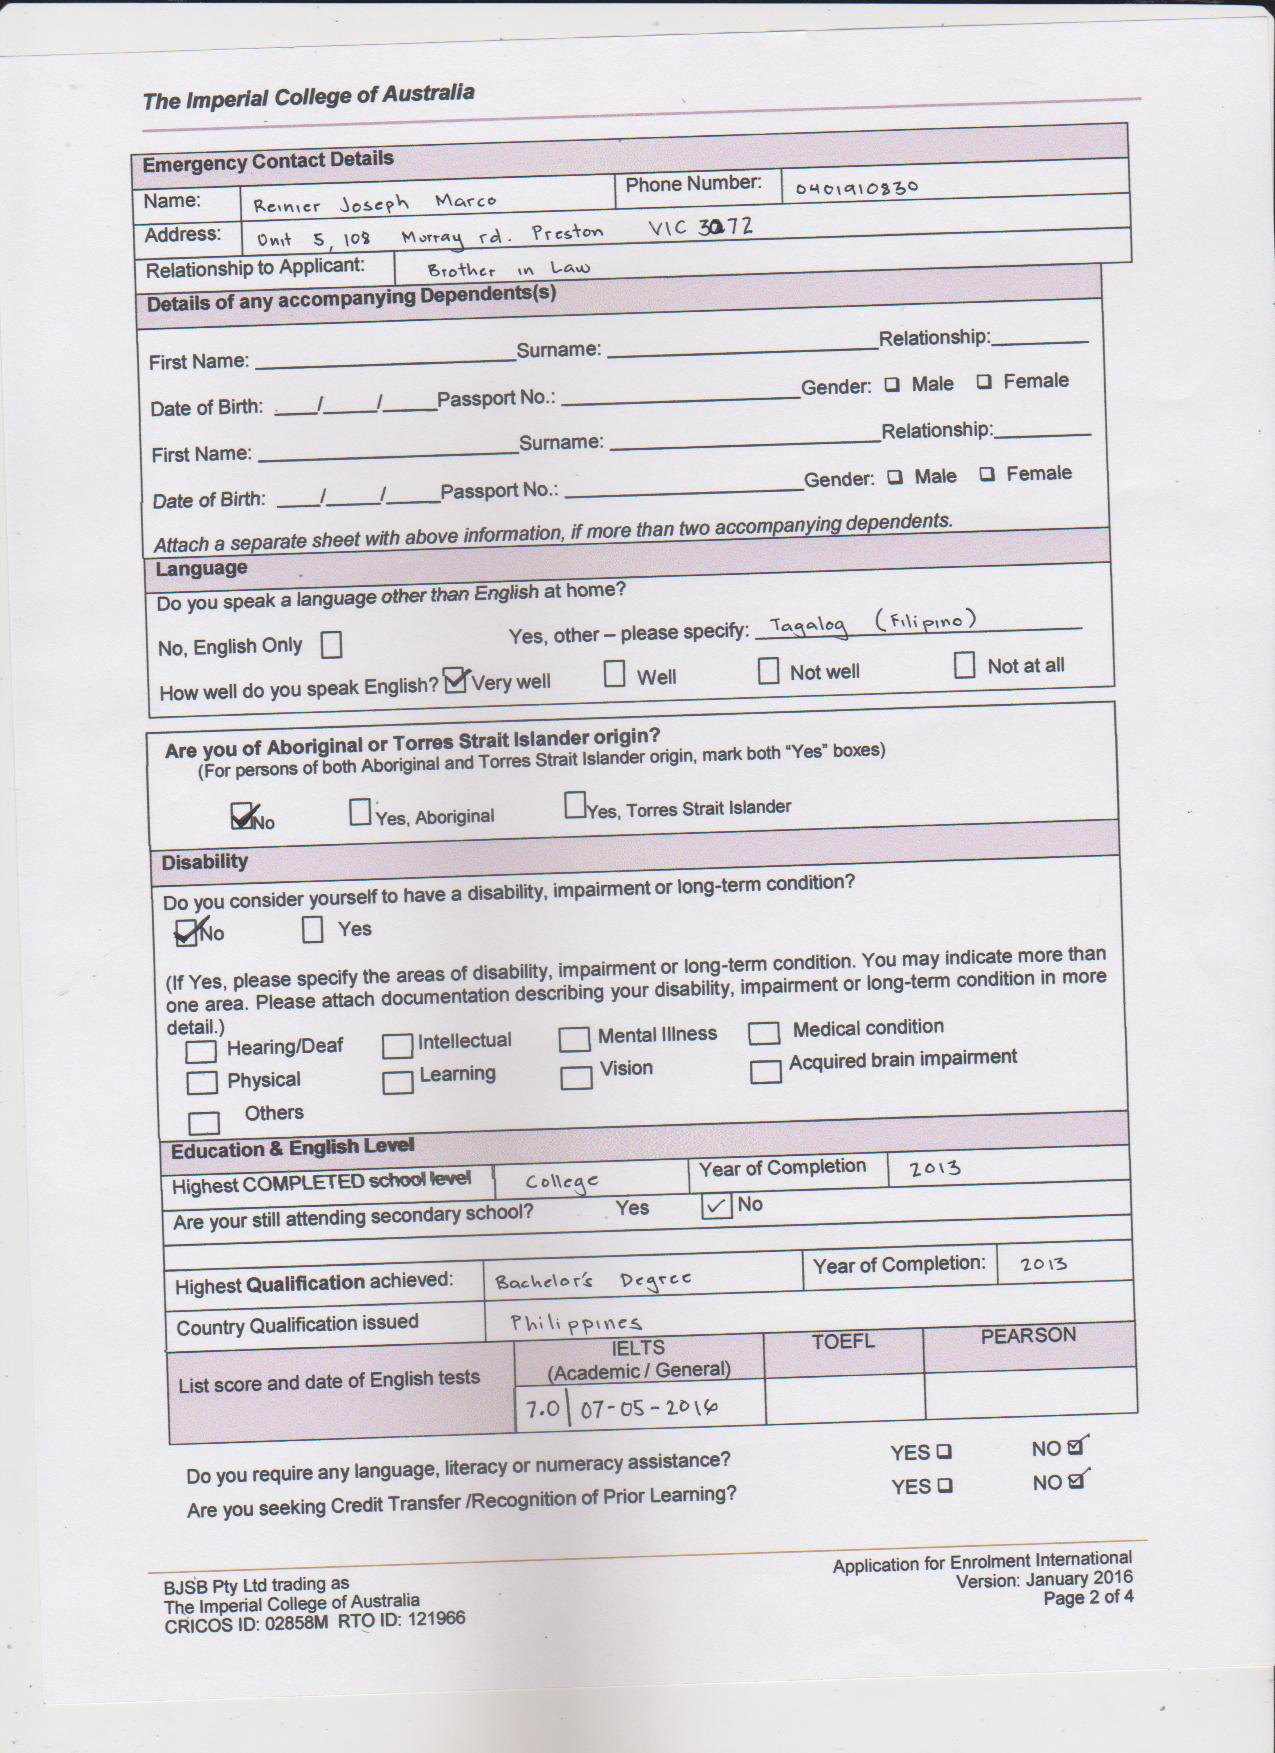 The Imperial College of Australia
Emergency Contact Details
Name: Reinier Joseph Marco Phone Number: 0401910830
Address: Unit 5, 108 Murray rd. Preston VIC 3072
Relationship to Applicant: Brother in Law
Details of any accompanying Dependents(s)
First Name: Surname: Relationship:
Date of Birth: / / Passport No.: Gender: Male Female
First Name: Surname: Relationship:
Date of Birth: / / Passport No.: Gender: Male Female
Attach a separate sheet with above information, if more than two accompanying dependents.
Language
Do you speak a language other than English at home?
No, English Only Yes, other – please specify: Tagalog (Filipino)
How well do you speak English? Very well Well Not well Not at all
Are you of Aboriginal or Torres Strait Islander origin?
(For persons of both Aboriginal and Torres Strait Islander origin, mark both "Yes" boxes)
No Yes, Aboriginal Yes, Torres Strait Islander
Disability
Do you consider yourself to have a disability, impairment or long-term condition?
No Yes
(If Yes, please specify the areas of disability, impairment or long-term condition. You may indicate more than
one area. Please attach documentation describing your disability, impairment or long-term condition in more
detail.)
Hearing/Deaf Intellectual Mental Illness Medical condition
Physical Learning Vision Acquired brain impairment
Others
Education & English Level
Highest COMPLETED school level College Year of Completion 2013
Are your still attending secondary school? Yes No
Highest Qualification achieved: Bachelor's Degree Year of Completion: 2013
Country Qualification issued Philippines
List score and date of English tests IELTS (Academic / General) TOEFL PEARSON
7.0 07-05-2016
Do you require any language, literacy or numeracy assistance? YES NO
Are you seeking Credit Transfer /Recognition of Prior Learning? YES NO
BJSB Pty Ltd trading as
The Imperial College of Australia
CRICOS ID: 02858M RTO ID: 121966
Application for Enrolment International
Version: January 2016
Page 2 of 4